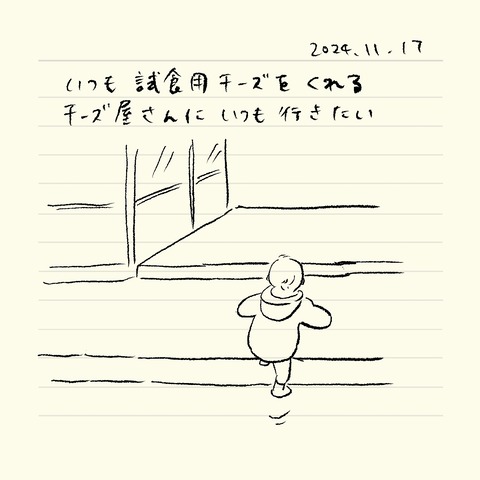 2024.11.17
いつも 試食用 チーズを くれる
チーズ屋さんに いつも 行きたい